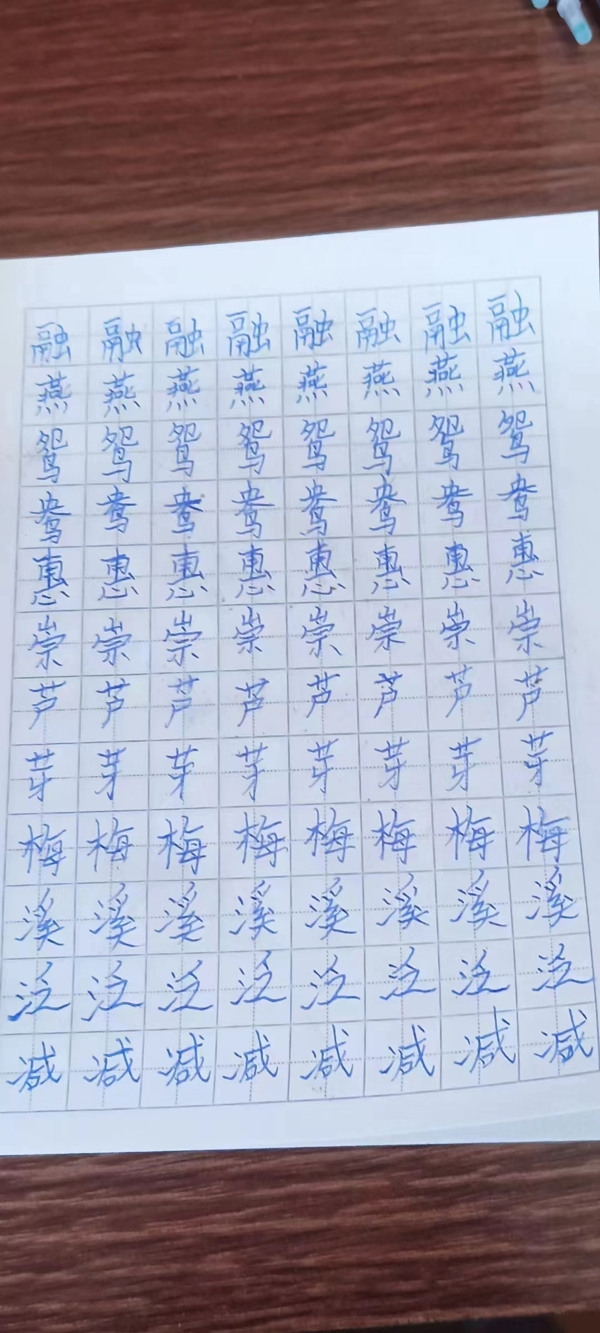 融融融融融融融融
燕燕燕燕燕燕燕燕
鸳鸳鸳鸳鸳鸳鸳鸳
鸯鸯鸯鸯鸯鸯鸯鸯
惠惠惠惠惠惠惠惠
崇崇崇崇崇崇崇崇
芦芦芦芦芦芦芦芦
芽芽芽芽芽芽芽芽
梅梅梅梅梅梅梅梅
溪溪溪溪溪溪溪溪
泛泛泛泛泛泛泛泛
减减减减减减减减